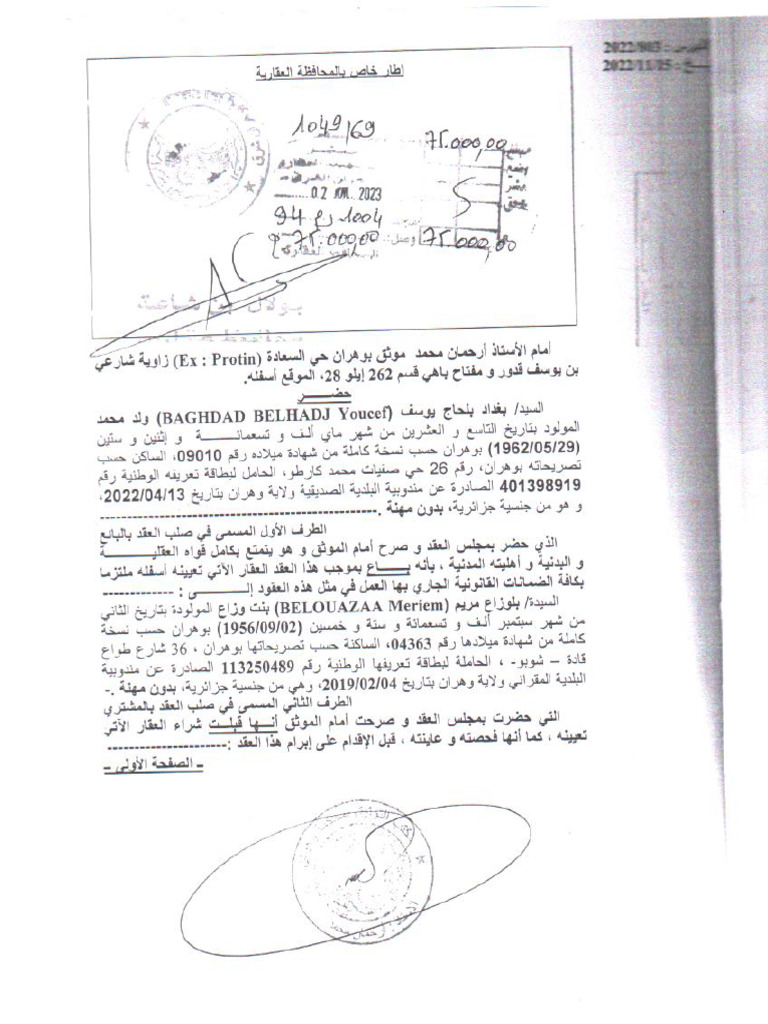 2022/803 :
2022/11/15 :
إطار خاص بالمحافظة العقارية
1049/69
75.000,00
02 2023
94 رع 1004
75.000,00
75.000,00
أمام الأستاذ أرحمان محمد موثق بوهران حي السعادة (Ex : Protin) زاوية شارعي
بن يوسف قدور و مفتاح باهي قسم 262 إيلو 28، الموقع أسفله.
حضــر
السيد/ بغداد بلحاج يوسف (BAGHDAD BELHADJ Youcef) ولد محمد
المولود بتاريخ التاسع و العشرين من شهر ماي ألف و تسعمائة و إثنين و ستين
(1962/05/29) بوهران حسب نسخة كاملة من شهادة ميلاده رقم 09010، الساكن حسب
تصريحاته بوهران، رقم 26 حي صنيات محمد كارطو، الحامل لبطاقة تعريفه الوطنية رقم
401398919 الصادرة عن مندوبية البلدية الصديقية ولاية وهران بتاريخ 2022/04/13،
و هو من جنسية جزائرية، بدون مهنة .-
الطرف الأول المسمى في صلب العقد بالبائع
الذي حضر بمجلس العقد و صرح أمام الموثق و هو يتمتع بكامل قواه العقلية
و البدنية و أهليته المدنية ، بأنه بــاع بموجب هذا العقد العقار الآتي تعيينه أسفله ملتزما
بكافة الضمانات القانونية الجاري بها العمل في مثل هذه العقود إلــى : -
السيدة/ بلوزاع مريم (BELOUAZAA Meriem) بنت وزاع المولودة بتاريخ الثاني
من شهر سبتمبر ألف و تسعمائة و ستة و خمسين (1956/09/02) بوهران حسب نسخة
كاملة من شهادة ميلادها رقم 04363، الساكنة حسب تصريحاتها بوهران ، 36 شارع طواع
قادة – شوبو- ، الحاملة لبطاقة تعريفها الوطنية رقم 113250489 الصادرة عن مندوبية
البلدية المقراني ولاية وهران بتاريخ 2019/02/04، وهي من جنسية جزائرية، بدون مهنة .-
الطرف الثاني المسمى في صلب العقد بالمشتري
التي حضرت بمجلس العقد و صرحت أمام الموثق أنــها قبلــت شراء العقار الآتي
تعيينه ، كما أنها فحصته و عاينته ، قبل الإقدام على إبرام هذا العقد :-
ـ الصفحة الأولى ـ